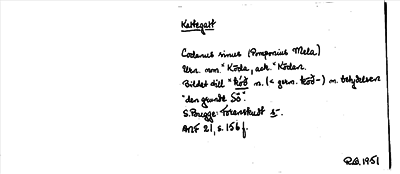 Kattegatt
Codanus sinus (Pomponius Mela)
Urn. nom. *Koda, ack. *Kodan.
Bildat till *koð n. (< germ. koð-) m. betydelsen
"den grunda Sö".
S. Bugge: Foranskudt s-.
ANF 21, s. 156 f.
R.O. 1951